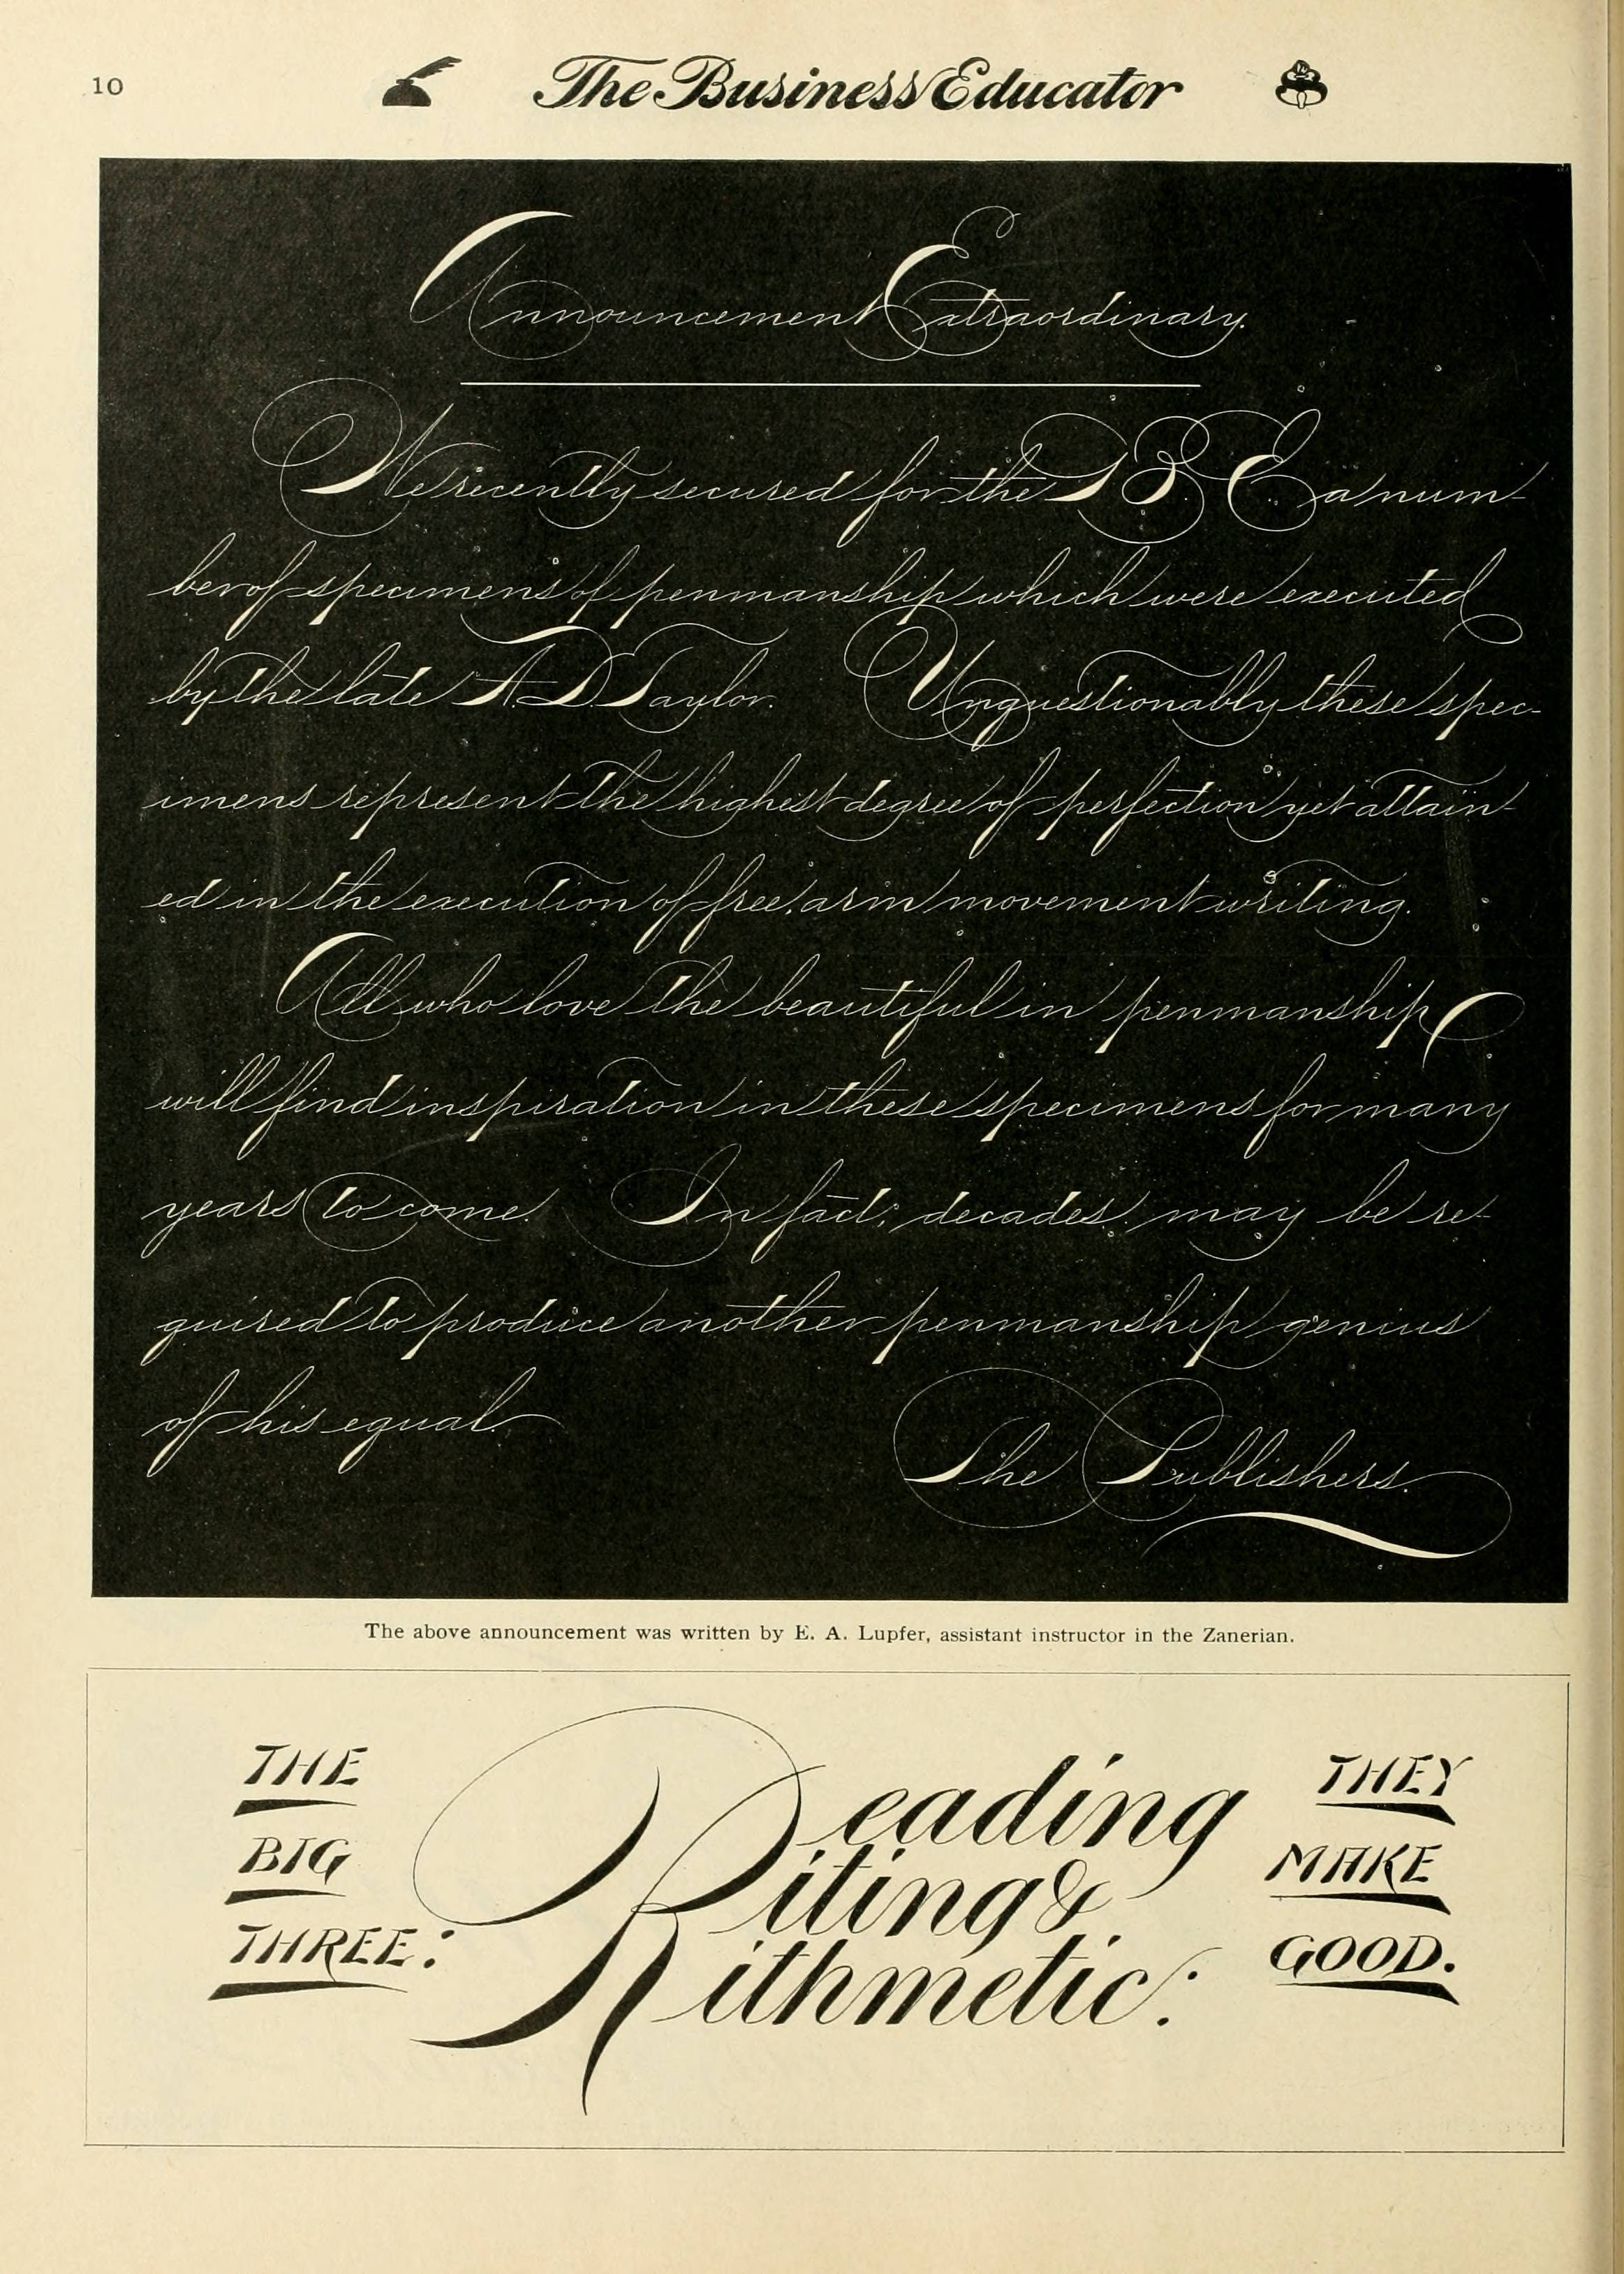 10
The Business Educator
Announcement Extraordinary.
We recently secured for the B. E. a num-
ber of specimens of penmanship which were executed
by the late A. D. Taylor. Unquestionably these spec-
imens represent the highest degree of perfection yet attain-
ed in the execution of free, arm movement writing.
All who love the beautiful in penmanship
will find inspiration in these specimens for many
years to come. In fact, decades, may be re-
quired to produce another penmanship genius
of his equal.
The Publishers.
The above announcement was written by E. A. Lupfer, assistant instructor in the Zanerian.
THE
BIG
THREE:
Reading
Riting &
Rithmetic:
THEY
MAKE
GOOD.